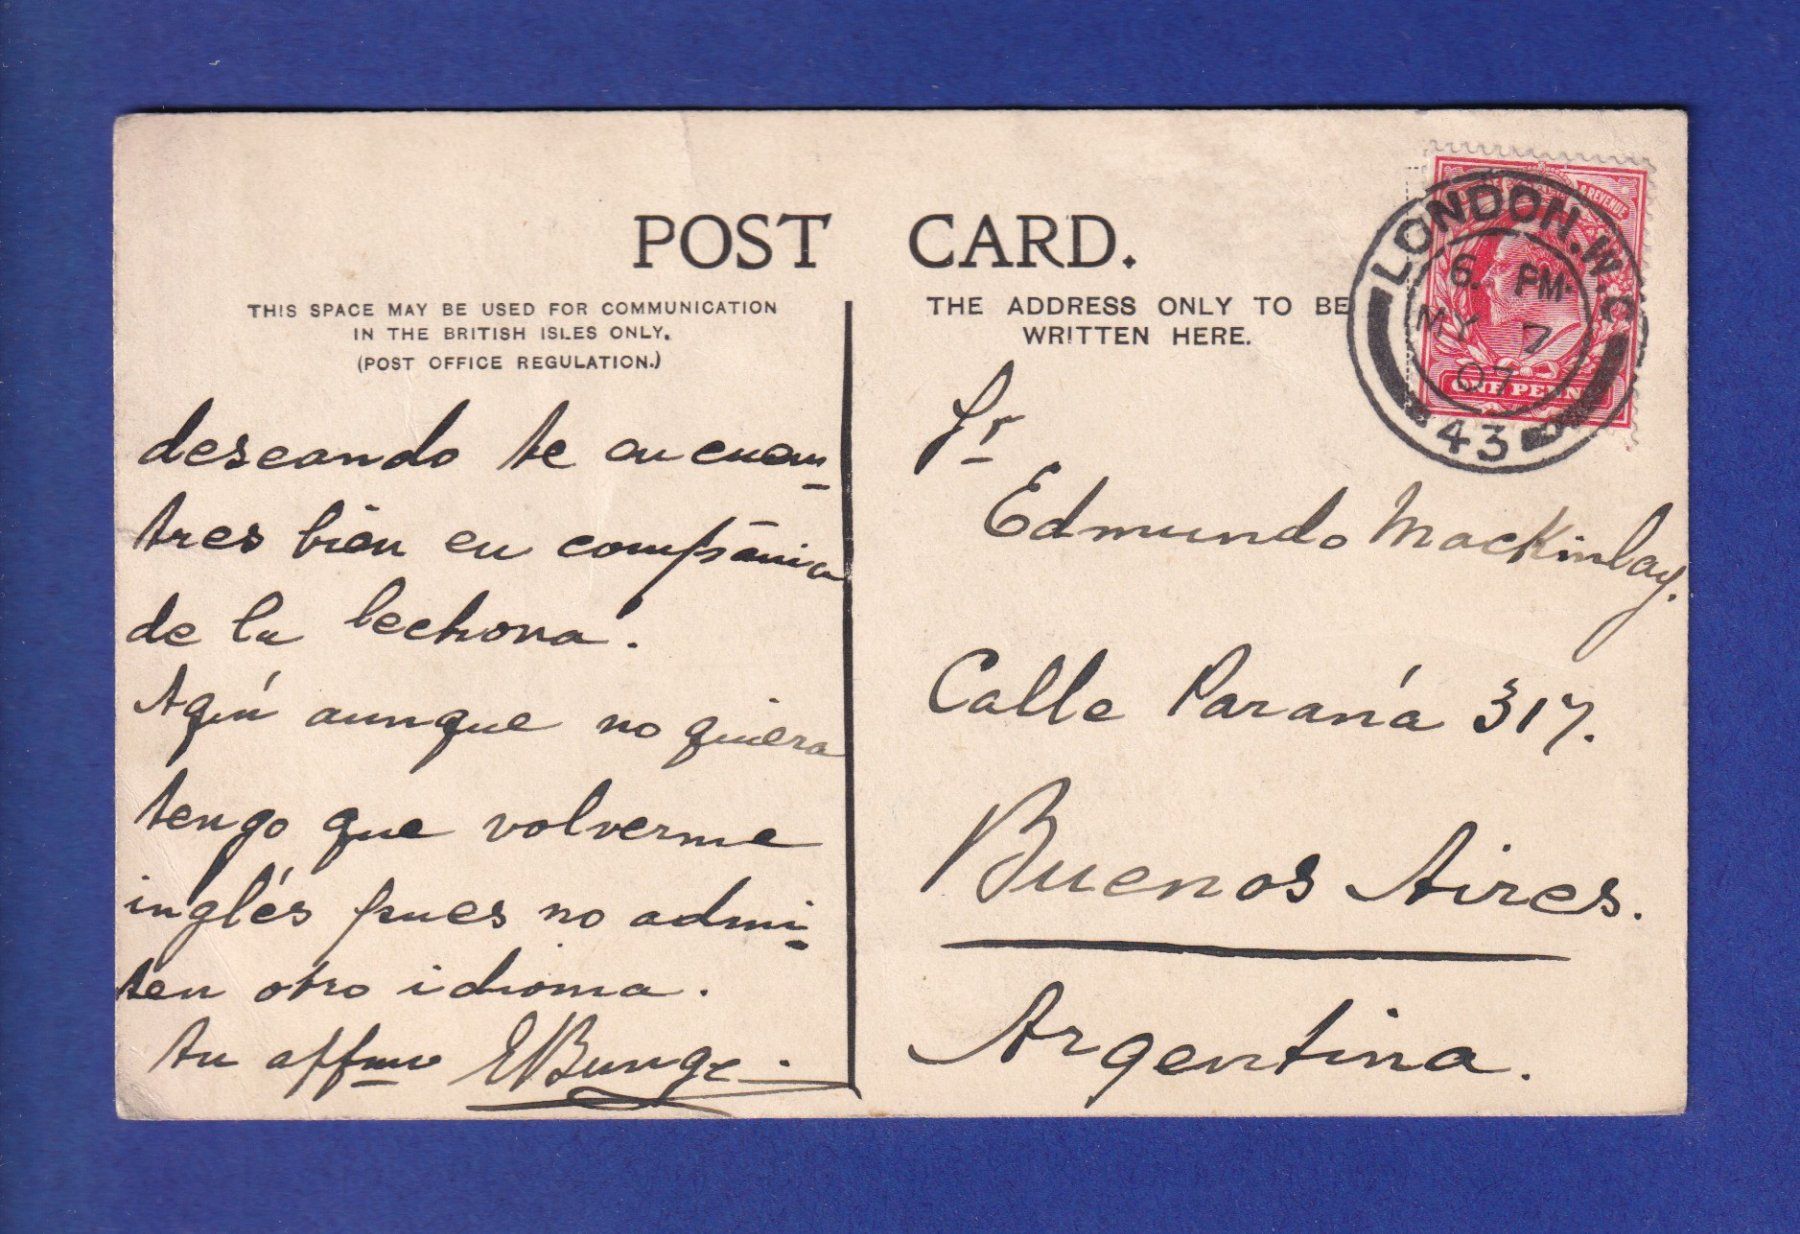 POST CARD.
THIS SPACE MAY BE USED FOR COMMUNICATION
IN THE BRITISH ISLES ONLY.
(POST OFFICE REGULATION.)
deseando te encuen-
tres bien en compánia
de la lechona.
Aquí aunque no quiera
tengo que volverme
inglés pues no admi-
ten otro idioma.
tu affmo EBunge.
THE ADDRESS ONLY TO BE
WRITTEN HERE.
Sr
Edmundo Mackinlay.
Calle Paraná 317.
Buenos Aires.
Argentina.
LONDON.W.C
6. PM.
MY 7
07
43
& REVENUE
ONE PENNY